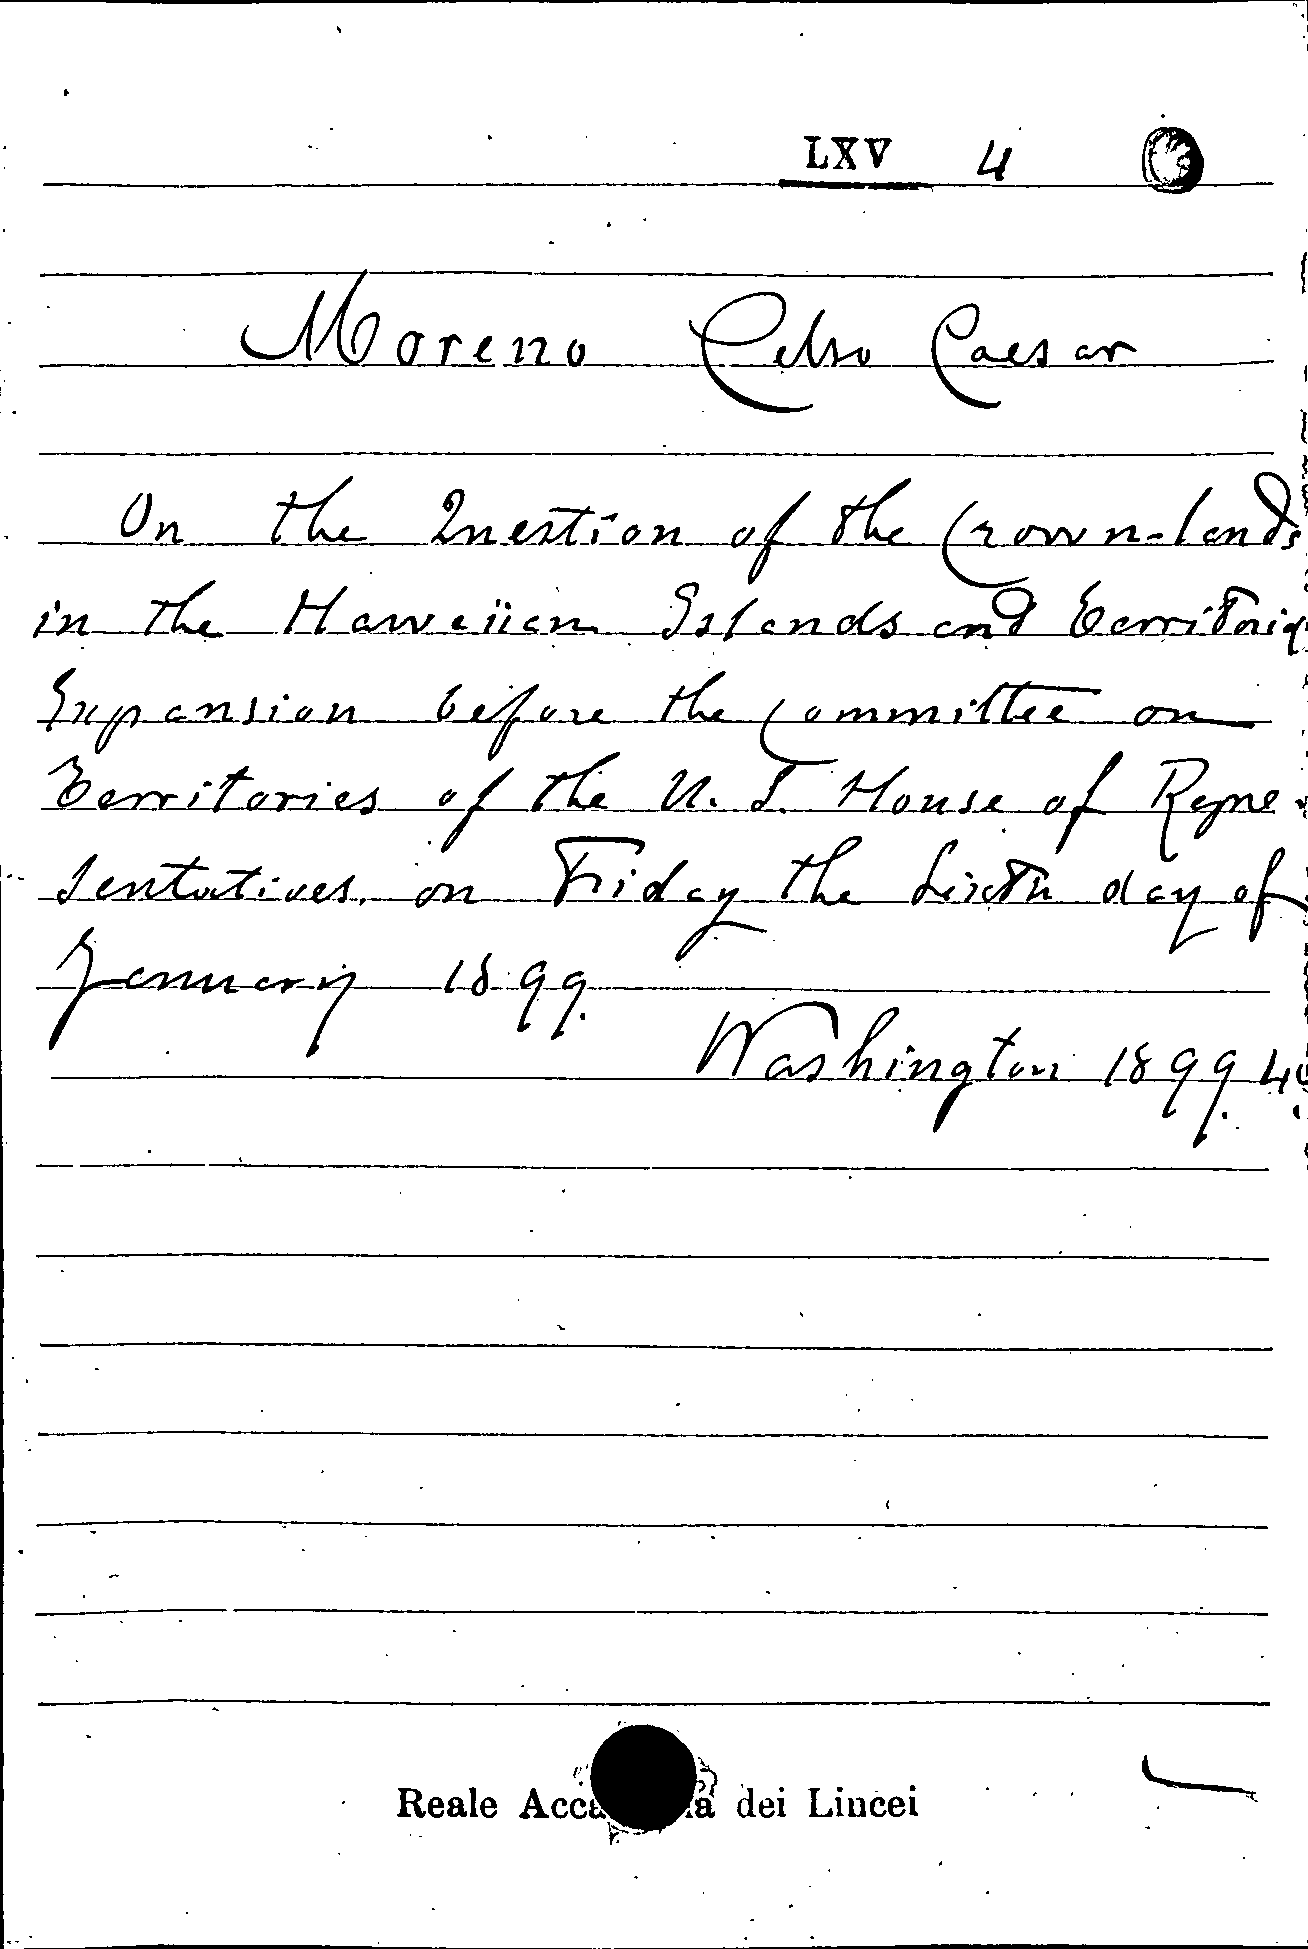 LXV 4
Moreno Celso Caesar
On the Question of the Crown-lands
in the Hawaiian Islands and
Expansion before the Committee on
Territories of the U. S. House of Repre-
sentatives. on Friday the Sixth day of
January 1899.
Washington 1899.
Reale dei Lincei